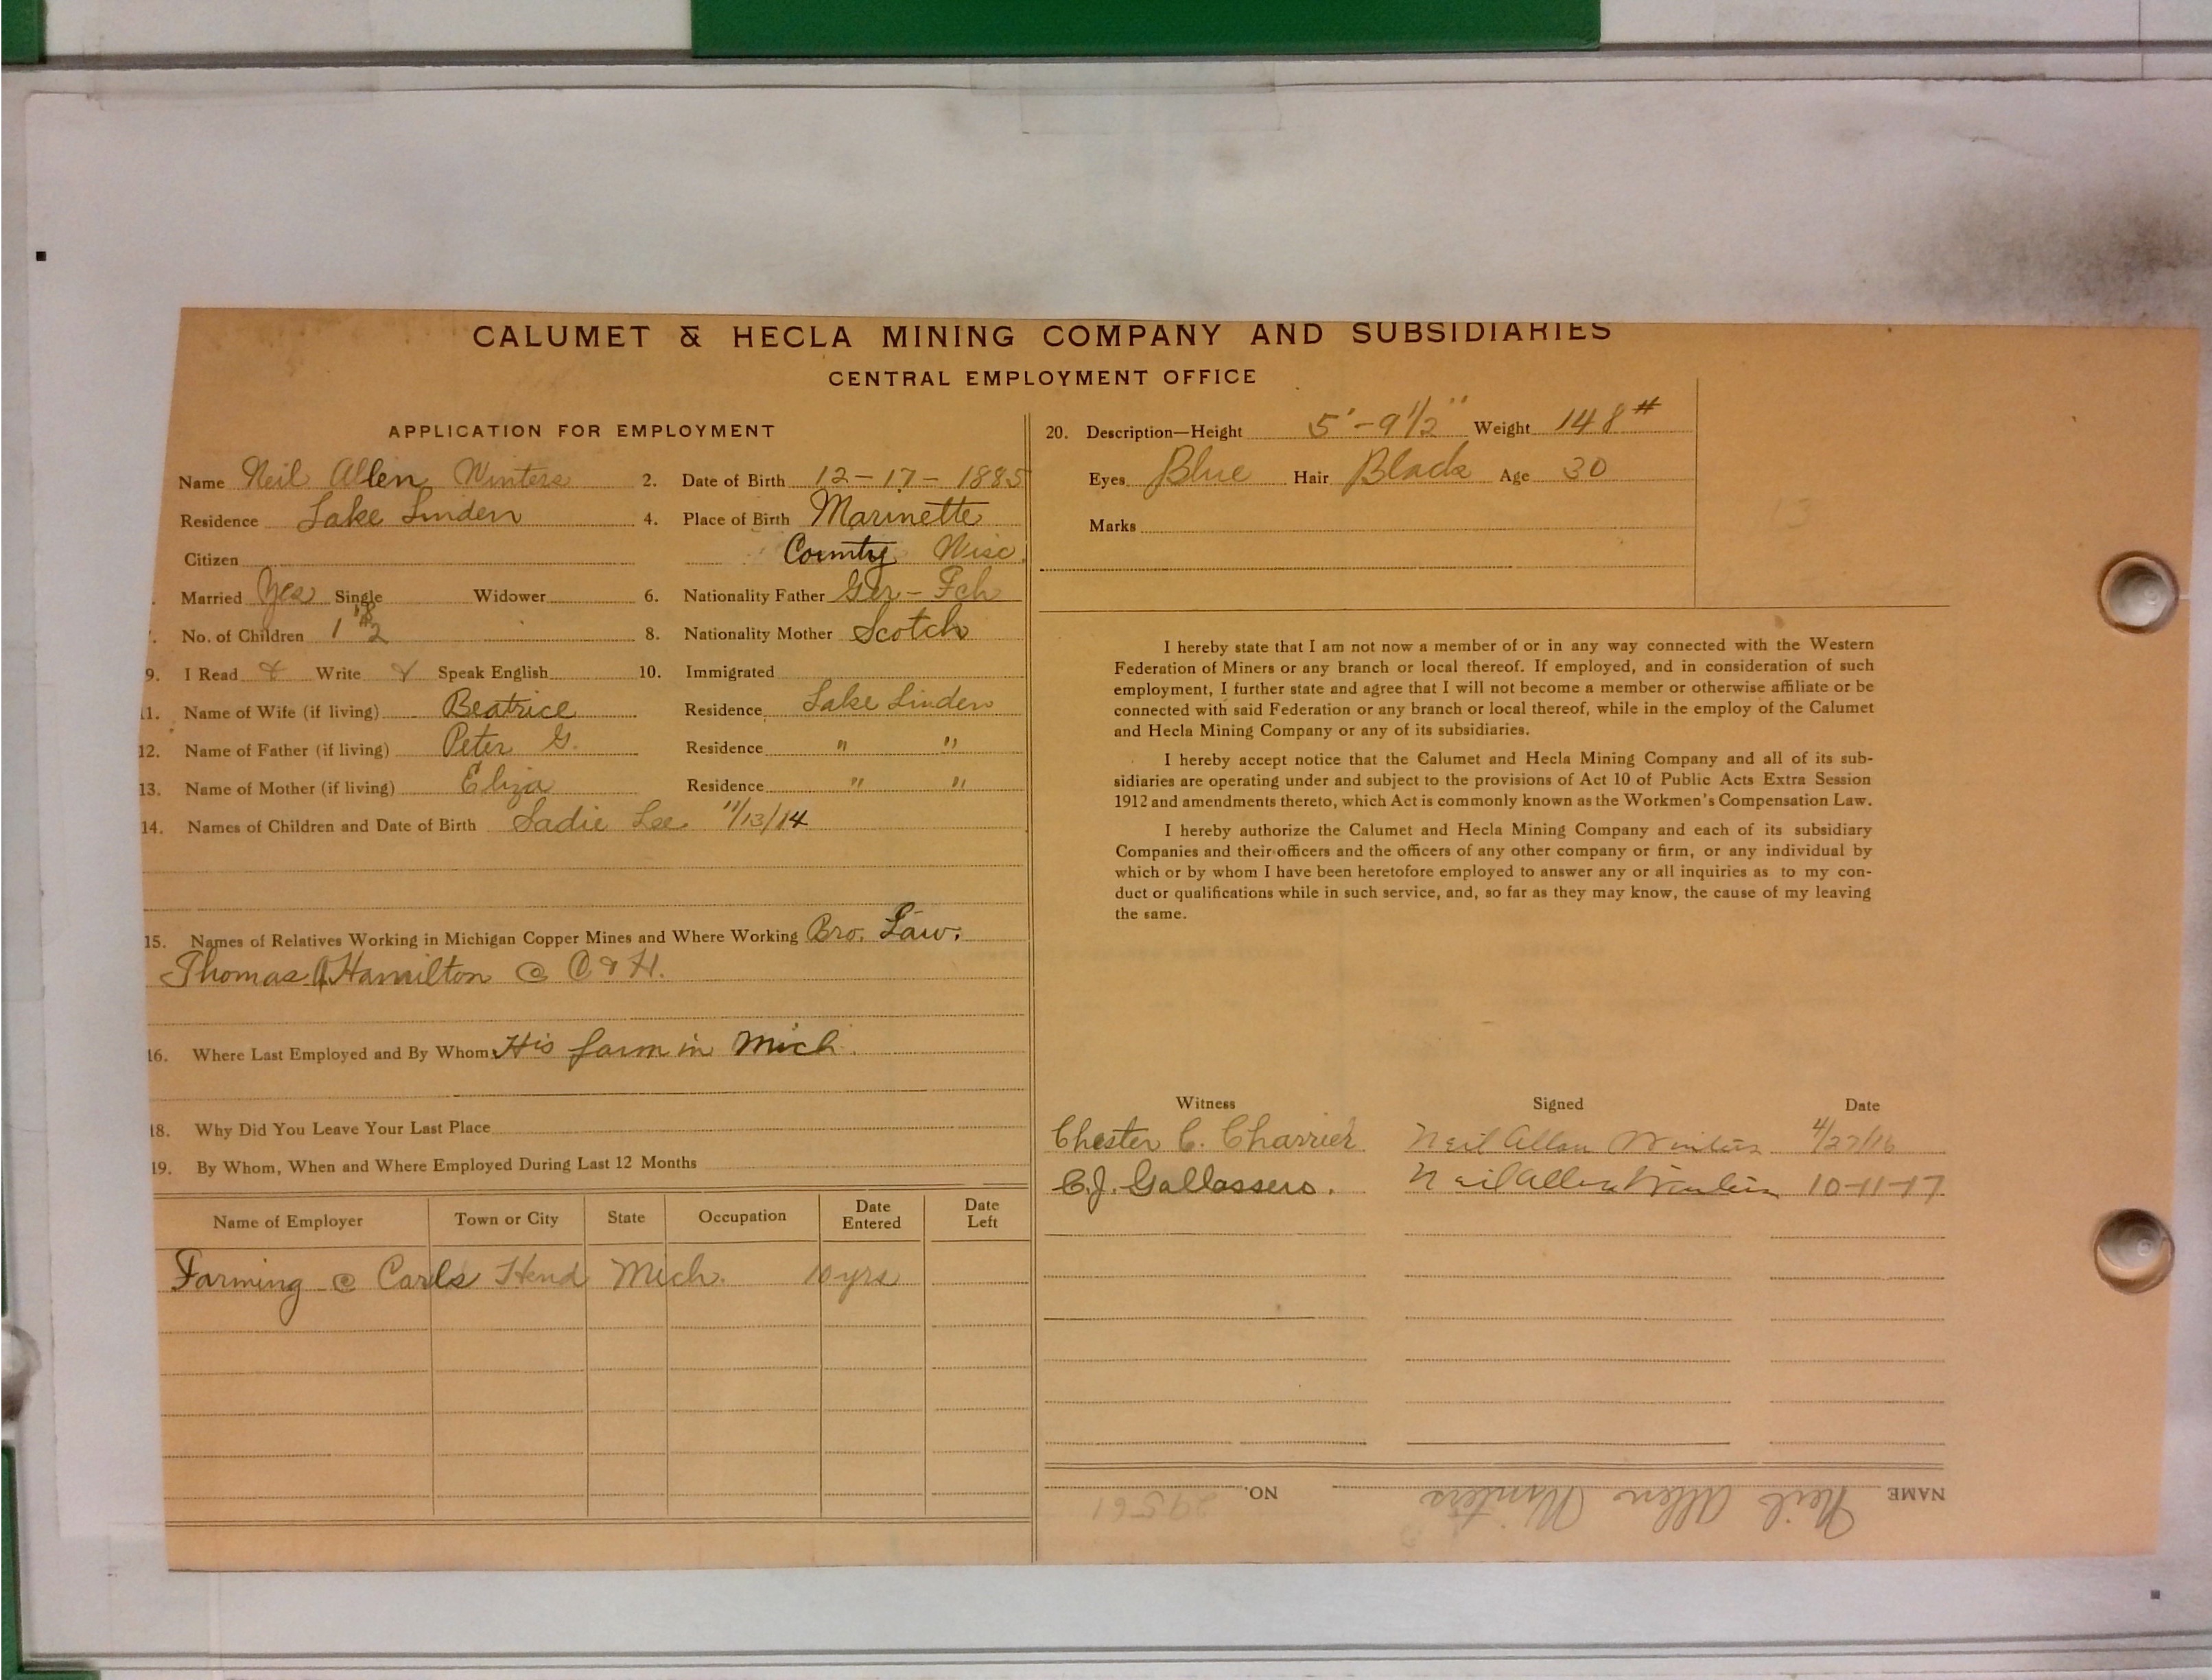 CALUMET & HECLA MINING COMPANY AND SUBSIDIARIES
CENTRAL EMPLOYMENT OFFICE
APPLICATION FOR EMPLOYMENT
Name Neil Allen Winters 2. Date of Birth 12-17-1885
Residence Lake Linden 4. Place of Birth Marinette
Citizen County Wisc.
Married Yes Single Widower 6. Nationality Father Ger - Fch
No. of Children 1 2 8. Nationality Mother Scotch
9. I Read & Write & Speak English 10. Immigrated
11. Name of Wife (if living) Beatrice Residence Lake Linden
12. Name of Father (if living) Peter G. Residence " "
13. Name of Mother (if living) Eliza Residence " "
14. Names of Children and Date of Birth Sadie Lee 11/13/14
15. Names of Relatives Working in Michigan Copper Mines and Where Working Bro. Law.
Thomas Hamilton @ C & H.
16. Where Last Employed and By Whom His farm in Mich.
18. Why Did You Leave Your Last Place
19. By Whom, When and Where Employed During Last 12 Months
Name of Employer Town or City State Occupation Date Entered Date Left
Farming @ Carls Hend Mich. 10 yrs
20. Description—Height 5'-9 1/2" Weight 148#
Eyes Blue Hair Black Age 30
Marks
13
I hereby state that I am not now a member of or in any way connected with the Western
Federation of Miners or any branch or local thereof. If employed, and in consideration of such
employment, I further state and agree that I will not become a member or otherwise affiliate or be
connected with said Federation or any branch or local thereof, while in the employ of the Calumet
and Hecla Mining Company or any of its subsidiaries.
I hereby accept notice that the Calumet and Hecla Mining Company and all of its sub-
sidiaries are operating under and subject to the provisions of Act 10 of Public Acts Extra Session
1912 and amendments thereto, which Act is commonly known as the Workmen's Compensation Law.
I hereby authorize the Calumet and Hecla Mining Company and each of its subsidiary
Companies and their officers and the officers of any other company or firm, or any individual by
which or by whom I have been heretofore employed to answer any or all inquiries as to my con-
duct or qualifications while in such service, and, so far as they may know, the cause of my leaving
the same.
Witness Signed Date
Chester C. Charrier Neil Allan Winters 4/27/16
C.J. Gallassero. Neil Allan Winters 10-11-17
NAME Neil Allen Winters NO. 29561